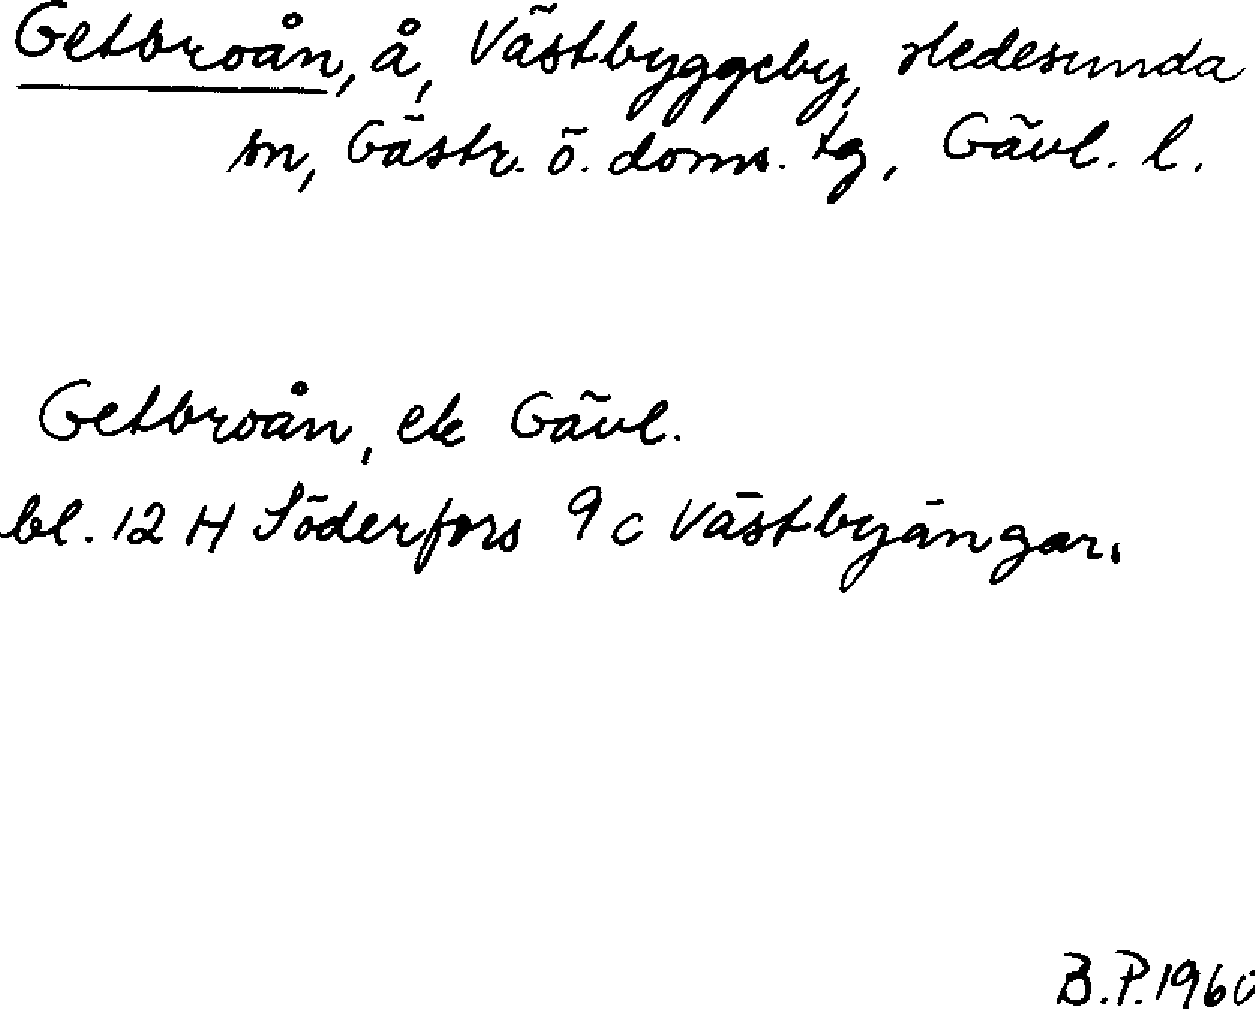 Getbroån, å, Västbyggeby, Hedesunda
sn, Gästr. ö. doms. tg, Gävl. l.
Getbroån, ek Gävl.
bl. 12 H Söderfors 9 c Västbyängar.
B.P. 1960